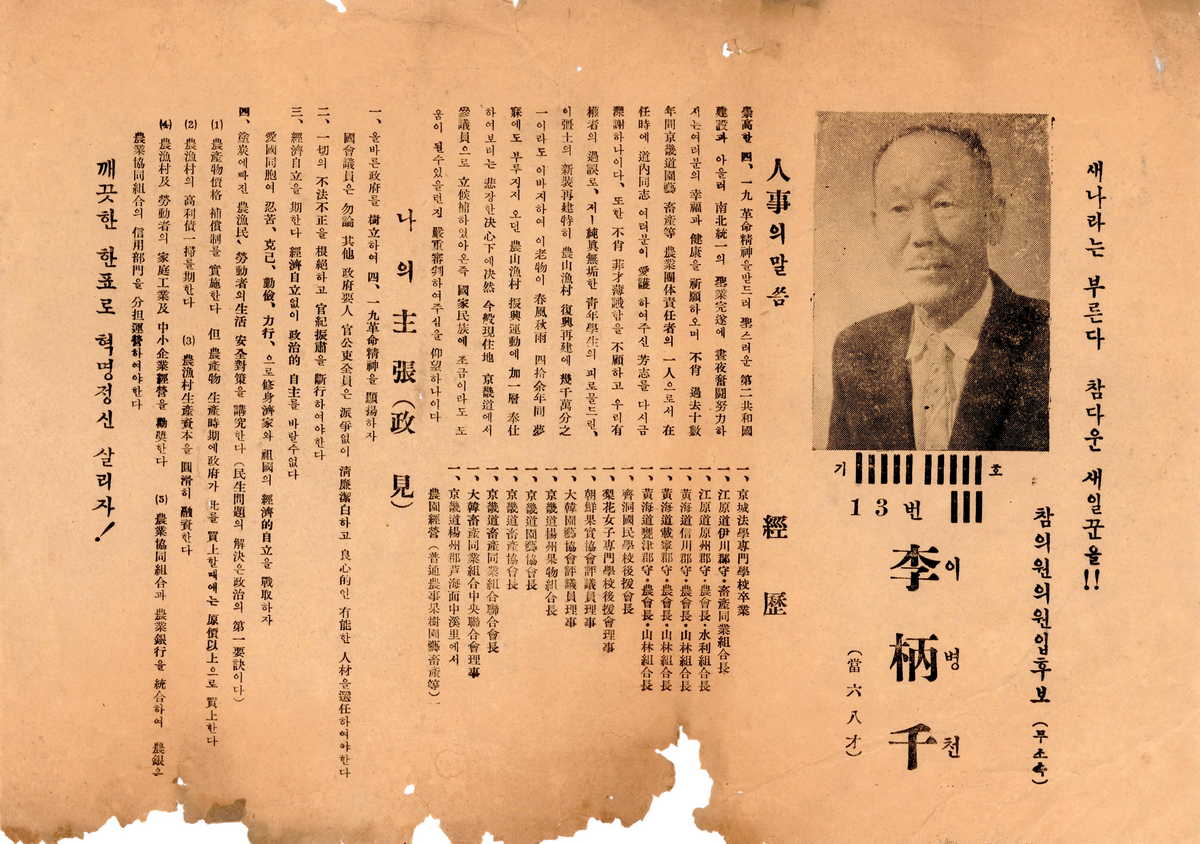 새나라는 부른다 참다운 새일꾼을!!
참의원의원입후보 (무소속)
기 호
13번
李柄千
이병천
(當六八才)
人事의말씀
崇高한 四、一九 革命精神을받드러 聖스러운 第二共和國
建設과 아울러 南北統一의 聖業完遂에 晝夜奮鬪努力하
시는여러분의 幸福과 健康을 祈願하오며 不肖 過去十數
年間京畿道園藝 畜產等 農業團体責任者의 一人으로서 在
任時에 道內同志 여러분이 愛護 하여주신 芳志를 다시금
深謝하나이다、또한 不肖 菲才薄識함을 不顧하고 우리有
權者의 過誤로、저ㅣ純眞無垢한 靑年學生의 피로물드린、
이疆土의 新裝再建特히 農山漁村 復興再建에 幾千萬分之
一이라도 이바지하여 이老物이 春風秋雨 四拾余年間 夢
寐에도 부루지지 오던 農山漁村 振興運動에 加一層 奉仕
하여보려는 悲장한決心下에決然 今般現住地 京畿道에서
參議員으로 立候補하였아온즉 國家民族에 조금이라도 도
움이 될수있을런지 嚴重審判하여주심을 仰望하나이다
經歷
一、京城法學專門學校卒業
一、江原道伊川郡守·畜產同業組合長
一、江原道原州郡守·農會長·水利組合長
一、黃海道信川郡守·農會長·山林組合長
一、黃海道載寧郡守·農會長·山林組合長
一、黃海道甕津郡守·農會長·山林組合長
一、齊洞國民學校後援會長
一、梨花女子專門學校後援會理事
一、朝鮮果實協會評議員理事
一、大韓園藝協會評議員理事
一、京畿道楊州果物組合長
一、京畿道園藝協會長
一、京畿道畜產協會長
一、京畿道畜產同業組合聯合會長
一、大韓畜產同業組合中央聯合會理事
一、京畿道楊州郡芦海面中溪里에서
農園經營(普通農事果樹園藝畜產等)
나의主張(政見)
一、올바른政府를 樹立하여 四、一九革命精神을 顯揚하자
國會議員은 勿論 其他 政府要人 官公吏全員은 派爭없이 淸廉潔白하고 良心的인 有能한 人材을選任하여야한다
二、一切의 不法不正을 根絕하고 官紀振肅을 斷行하여야한다
三、經濟自立을 期한다 經濟自立없이 政治的 自主를 바랄수없다
愛國同胞여 忍苦、克己、勤儉、力行、으로修身濟家와 祖國의 經濟的自立을 戰取하자
四、塗炭에빠진 農漁民、勞動者의生活 安全對策을 講究한다 (民生問題의 解決은政治의 第一要訣이다)
(1) 農產物價格 補償制를 實施한다 但 農產物 生產時期에政府가 此를 買上할때에는 原價以上으로 買上한다
(2) 農漁村의 高利債一掃를期한다 (3) 農漁村生產資本을 圓滑히 融資한다
(4) 農漁村及 勞動者의 家庭工業及 中小企業經營을 勸奬한다 (5) 農業協同組合과 農業銀行을 統合하여 農銀은
農業協同組合의 信用部門을 分担運營하여야한다
깨끗한 한표로 혁명정신 살리자!